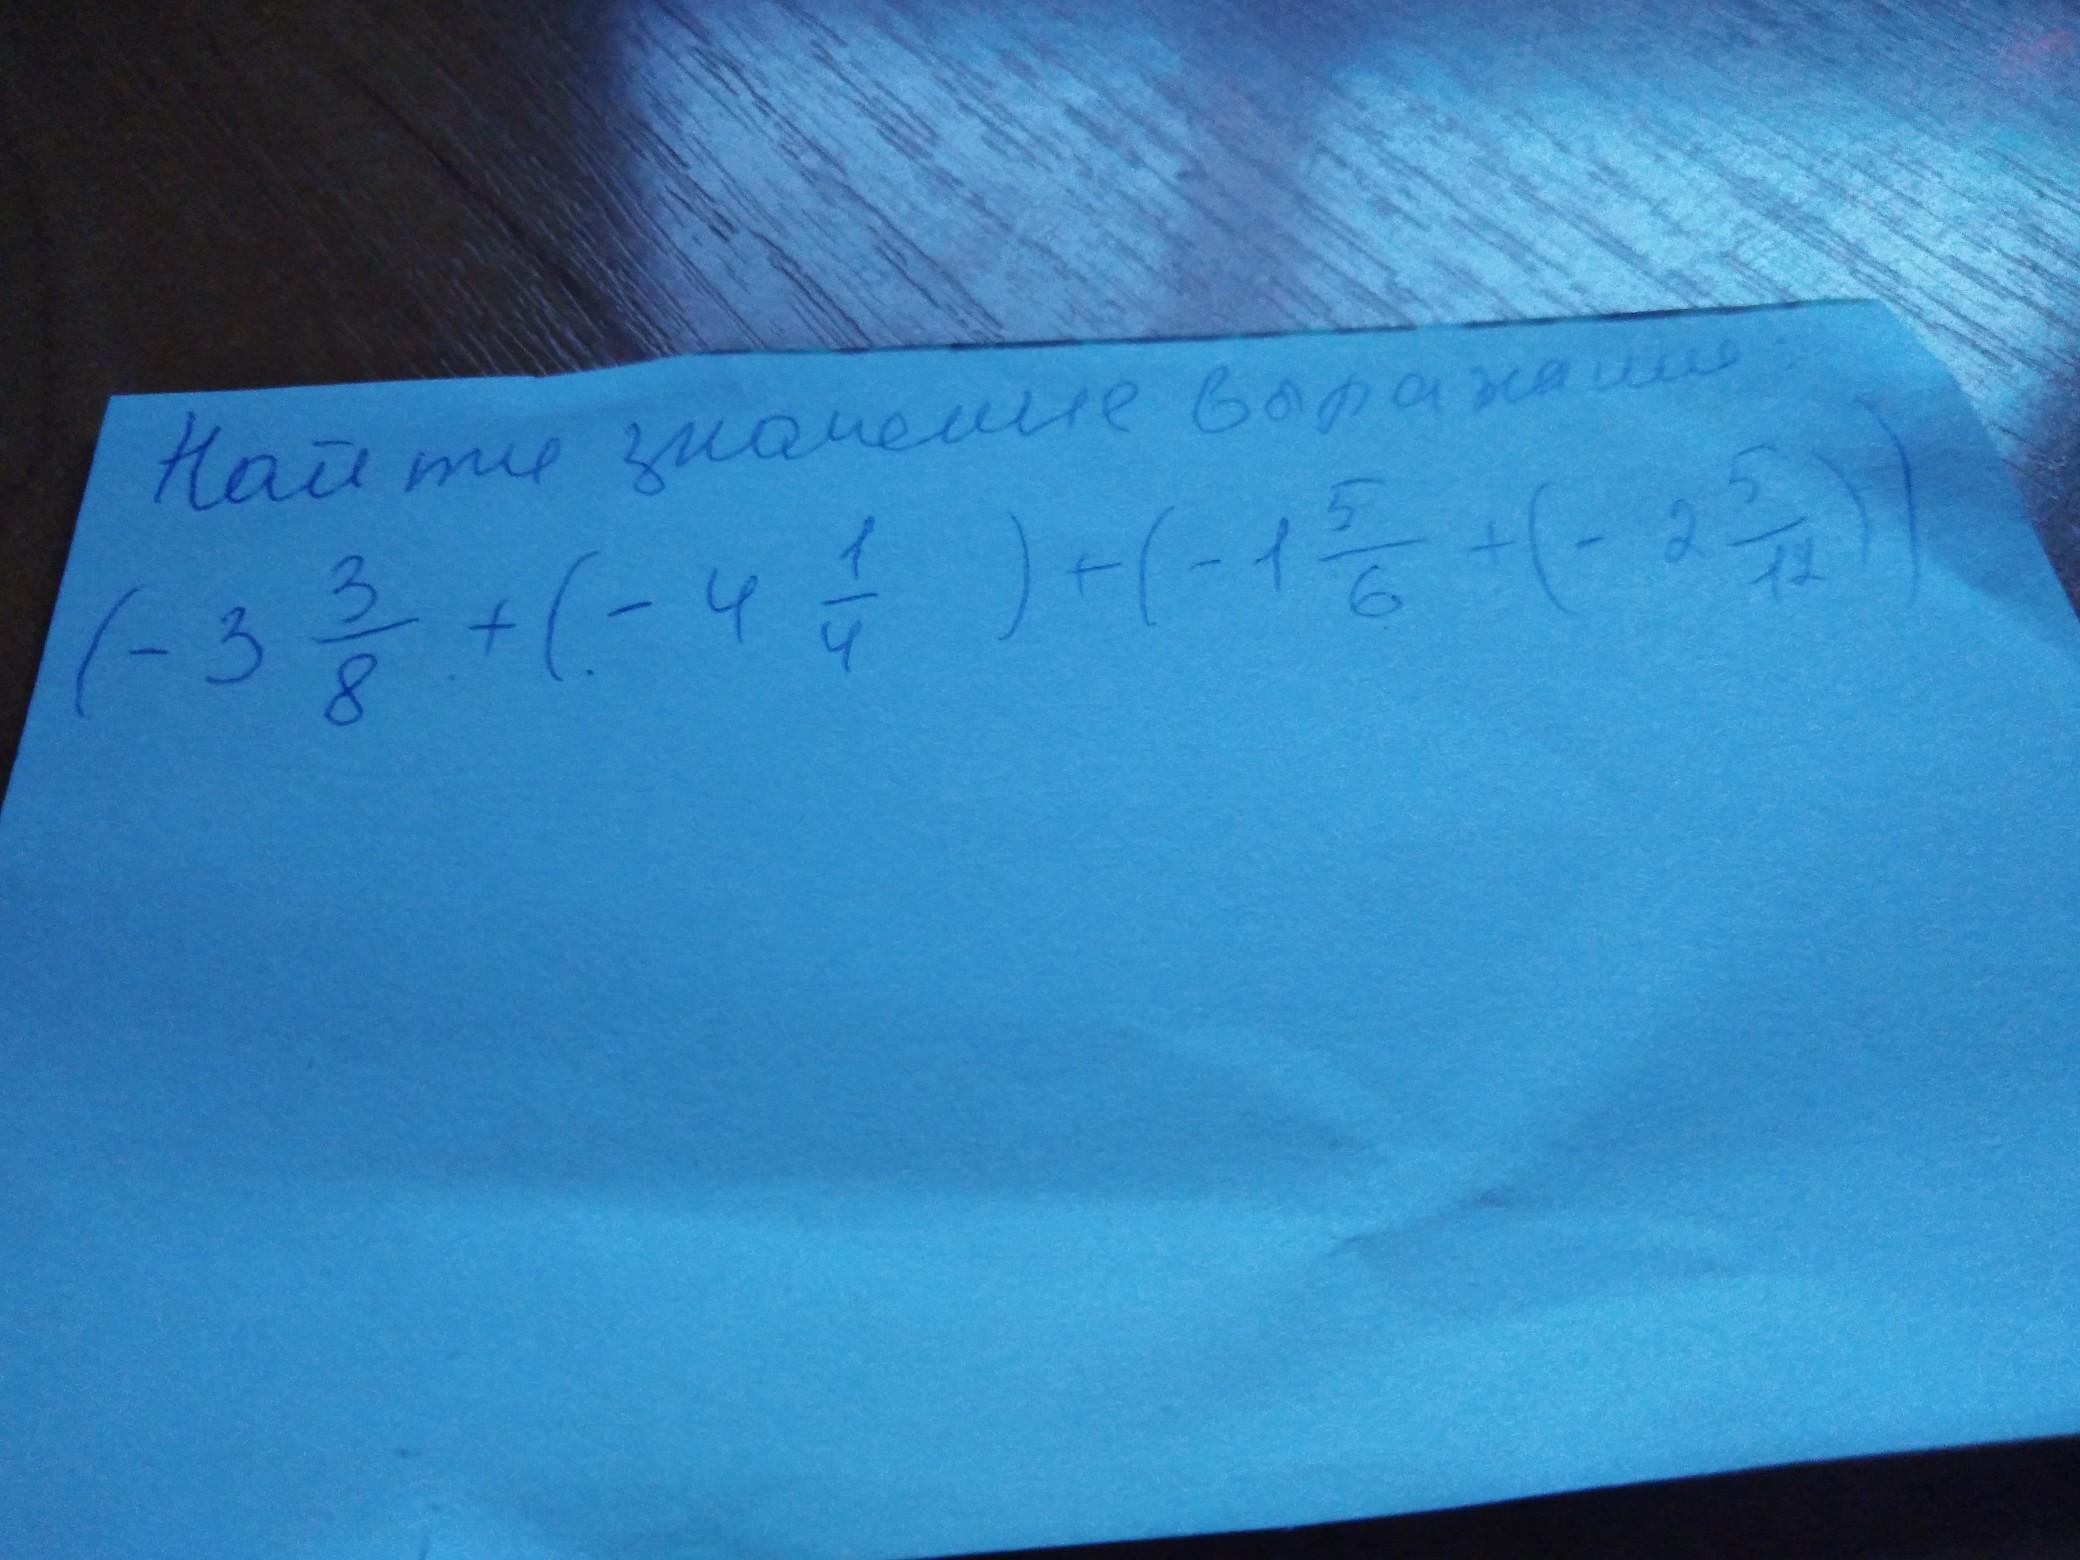 Найти значение выражения:
(-3 3/8 + (-4 1/4 ) + (-1 5/6 + (- 2 5/12))